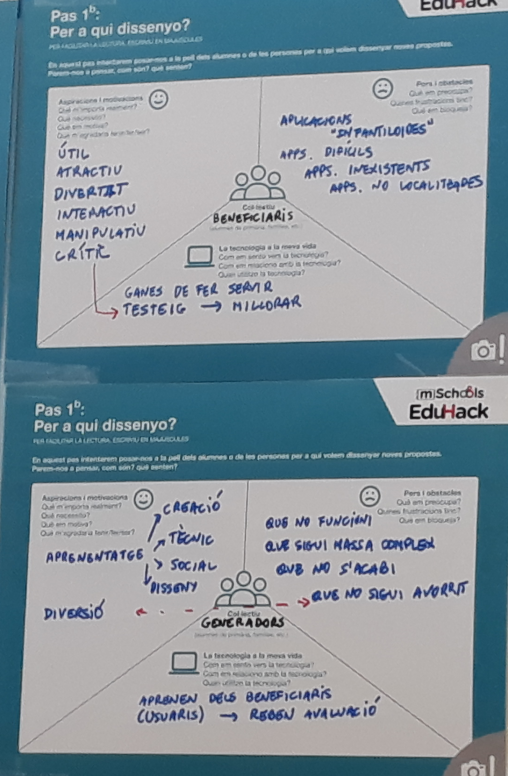 EduHack
Pas 1ᵇ:
Per a qui dissenyo?
PER FACILITAR LA LECTURA, ESCRIVIU EN MAJÚSCULES
En aquest pas intentarem posar-nos a la pell dels alumnes o de les persones per a qui volem dissenyar noves propostes.
Parem-nos a pensar, com són? què senten?
Aspiracions i motivacions
Què m'importa realment?
Què necessito?
Què em motiva?
Què m'agradaria tenir/fer/ser?
ÚTIL
ATRACTIU
DIVERTIT
INTERACTIU
MANIPULATIU
CRÍTIC
Pors i obstacles
Què em preocupa?
Quines frustracions tinc?
Què em bloqueja?
APLICACIONS
"INFANTILOIDES"
APPS. DIFÍCILS
APPS. INEXISTENTS
APPS. NO LOCALITZADES
Col·lectiu
BENEFICIARIS
(alumnes de primària, famílies, etc.)
La tecnologia a la meva vida
Com em sento vers la tecnologia?
Com em relaciono amb la tecnologia?
Quan utilitzo la tecnologia?
GANES DE FER SERVIR
TESTEIG → MILLORAR
[m]Schools
EduHack
Pas 1ᵇ:
Per a qui dissenyo?
PER FACILITAR LA LECTURA, ESCRIVIU EN MAJÚSCULES
En aquest pas intentarem posar-nos a la pell dels alumnes o de les persones per a qui volem dissenyar noves propostes.
Parem-nos a pensar, com són? què senten?
Aspiracions i motivacions
Què m'importa realment?
Què necessito?
Què em motiva?
Què m'agradaria tenir/fer/ser?
APRENENTATGE
CREACIÓ
TÈCNIC
SOCIAL
DISSENY
DIVERSIÓ
Pors i obstacles
Què em preocupa?
Quines frustracions tinc?
Què em bloqueja?
QUE NO FUNCIONI
QUE SIGUI MASSA COMPLEX
QUE NO S'ACABI
QUE NO SIGUI AVORRIT
Col·lectiu
GENERADORS
(alumnes de primària, famílies, etc.)
La tecnologia a la meva vida
Com em sento vers la tecnologia?
Com em relaciono amb la tecnologia?
Quan utilitzo la tecnologia?
APRENEN DELS BENEFICIARIS
(USUARIS) → REBEN AVALUACIÓ